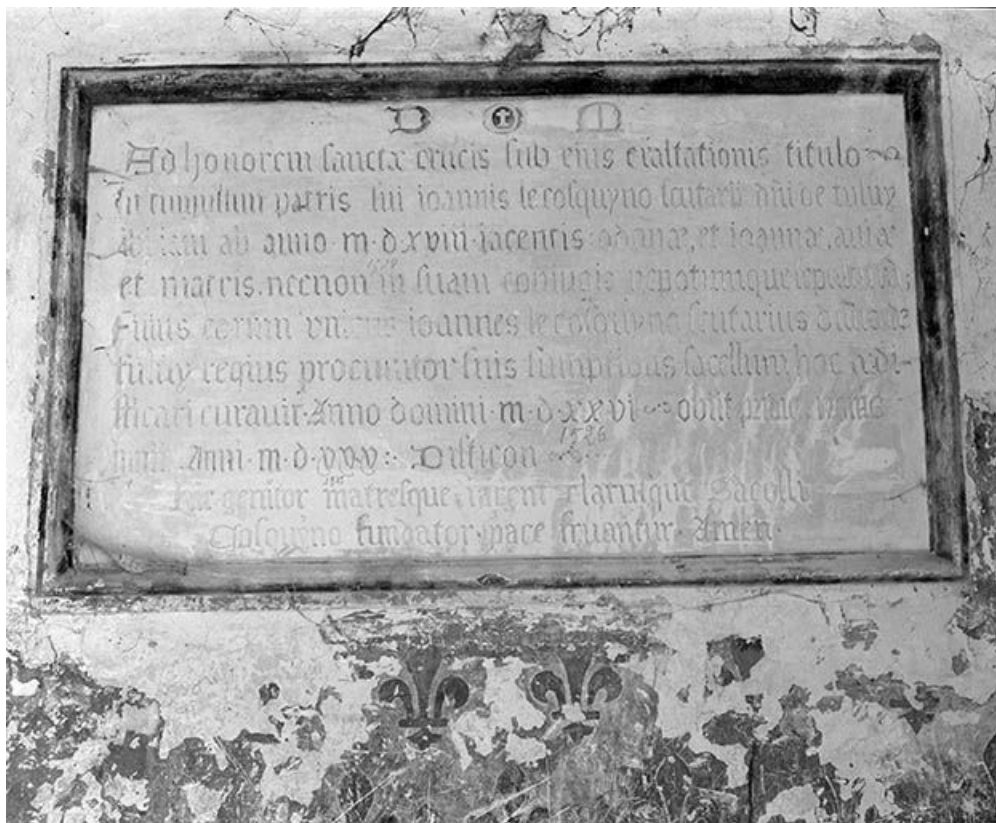 D O M
Ad honorem sanctæ crucis sub eius exaltationis titulo
In tumullum patris sui ioannis le cosquyno scutarii dñi de fuluy
ab anno · m · d · xviii · iacentis et ioannæ, aviæ
et matris. necnon in suam coniugis nepotumque
Filius eorum vnicus ioannes le cosquyno scutarius dñus de
fuluy regius procurator suis sumptibus sacellum hoc ædi-
fficari curavit · Anno domini · m · d · xxvi · obiit
1526
Anni · m · d · xxx : Disticon
genitor matresque iacent clarusque Sacelli
Cosquyno fundator · pace fruantur · Amen ·